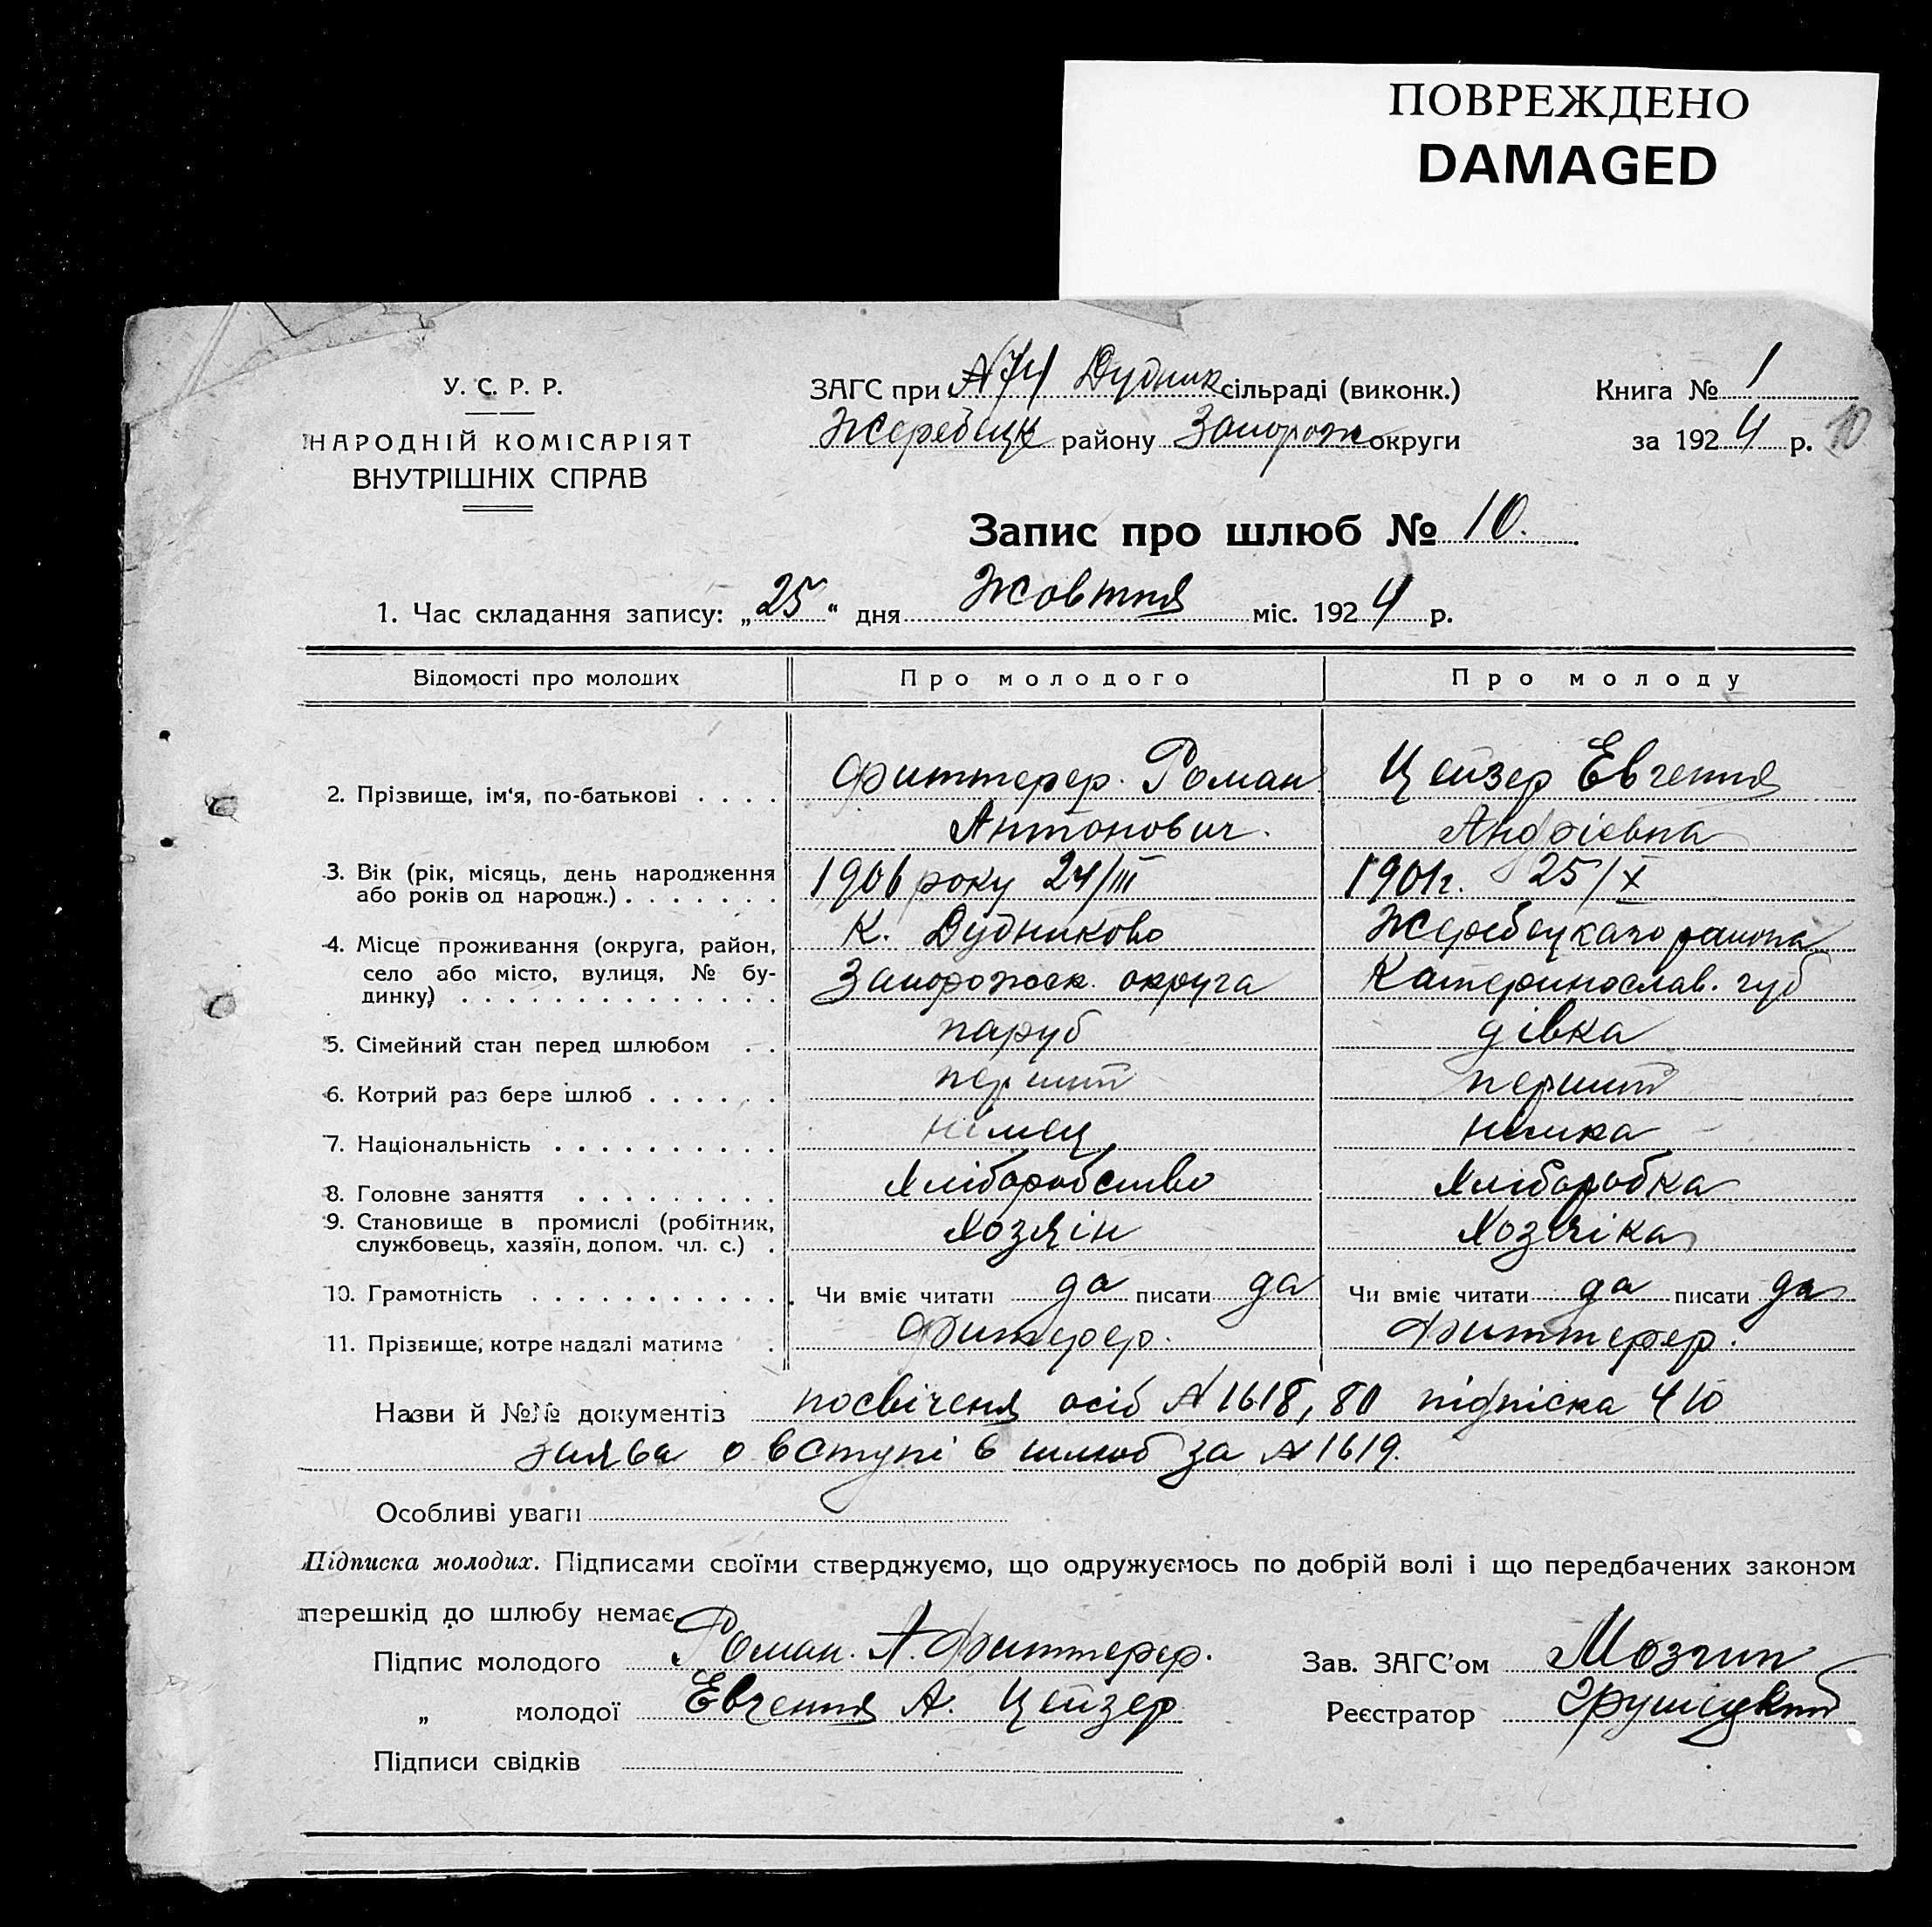 ПОВРЕЖДЕНО
DAMAGED
У. С. Р. Р.
НАРОДНІЙ КОМІСАРІЯТ
ВНУТРІШНІХ СПРАВ
ЗАГС при №74 Дудник сільраді (виконк.)
Жеребецк району Запорож округи
Книга № 1
за 1924 р. 10
Запис про шлюб № 10.
1. Час складання запису: „25“ дня Жовтня міс. 1924 р.
Відомості про молодих Про молодого Про молоду
2. Прізвище, ім'я, по-батькові . . . . Фиттерер. Роман Цейзер Евгения
Антонович. Андріевна
3. Вік (рік, місяць, день народження або років од народж.) . . . . . . . 1906 року 24/III 1901г. 25/X
4. Місце проживання (округа, район, село або місто, вулиця, № будинку) . . . . . . . . . . . . . . К. Дудниково Жеребецкаго района
Запорожск. округа Катеринослав. губ
5. Сімейний стан перед шлюбом . . паруб дівка
6. Котрий раз бере шлюб . . . . . . перший перший
7. Національність . . . . . . . . . . німец німка
8. Головне заняття . . . . . . . . . Хліборобство Хліборобка
9. Становище в промислі (робітник, службовець, хазяїн, допом. чл. с.) . Хозяін Хозяіка
10. Грамотність . . . . . . . . . . . Чи вміє читати да писати да Чи вміє читати да писати да
11. Прізвище, котре надалі матиме . Фитерер. Фиттерер.
Назви й №№ документів посвіченя осіб №1618, 80 підпіска 410
заява о вступі в шлюб за №1619.
Особливі уваги
Підписка молодих. Підписами своїми стверджуємо, що одружуємось по добрій волі і що передбачених законом
перешкід до шлюбу немає.
Підпис молодого Роман. А. Фиттерер. Зав. ЗАГС'ом
„ молодої Евгения А. Цейзер Реєстратор
Підписи свідків